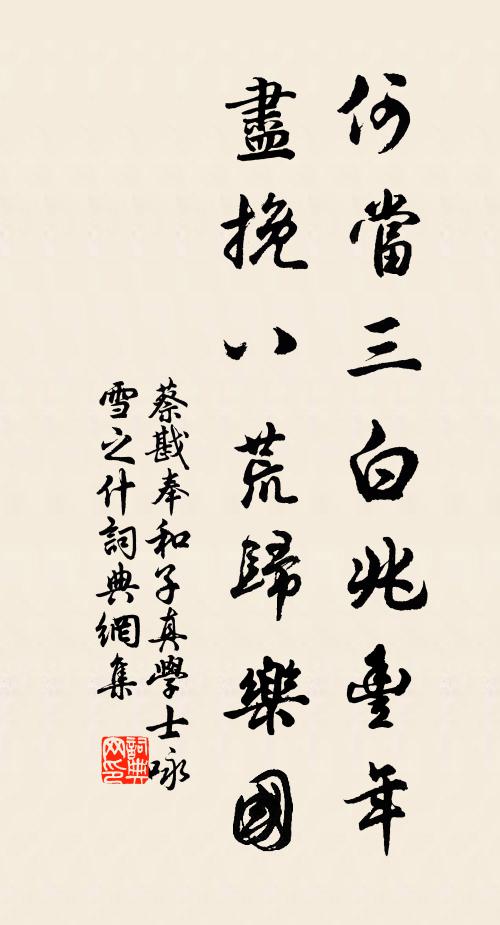 何當三白兆豐年
盡挽八荒歸樂國
蔡戡奉和子真學士咏
雪之什詞典網集
詞典
网印